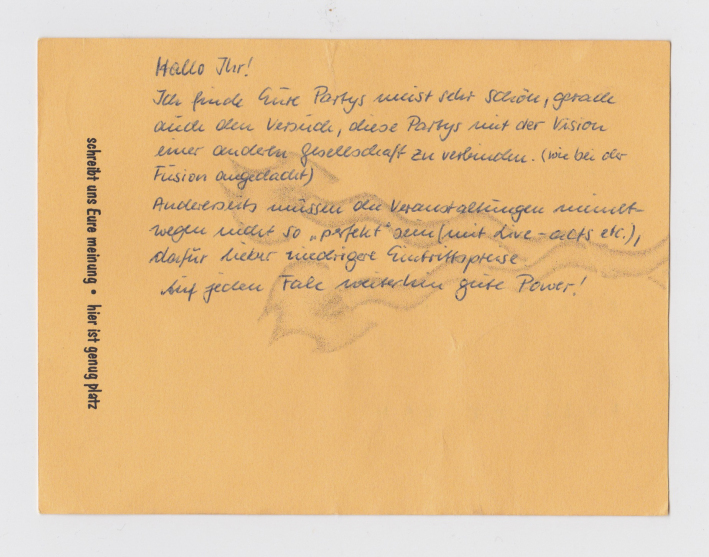 Hallo Ihr!
Ich finde Eure Partys meist sehr schön, gerade
auch den Versuch, diese Partys mit der Vision
einer anderen Gesellschaft zu verbinden. (wie bei der
Fusion angedacht)
Andererseits müssen die Veranstaltungen meinet-
wegen nicht so „perfekt“ sein (mit Live-acts etc.),
dafür lieber niedrigere Eintrittspreise
Auf jeden Fall weiterhin gute Power!
schreibt uns Eure meinung • hier ist genug platz